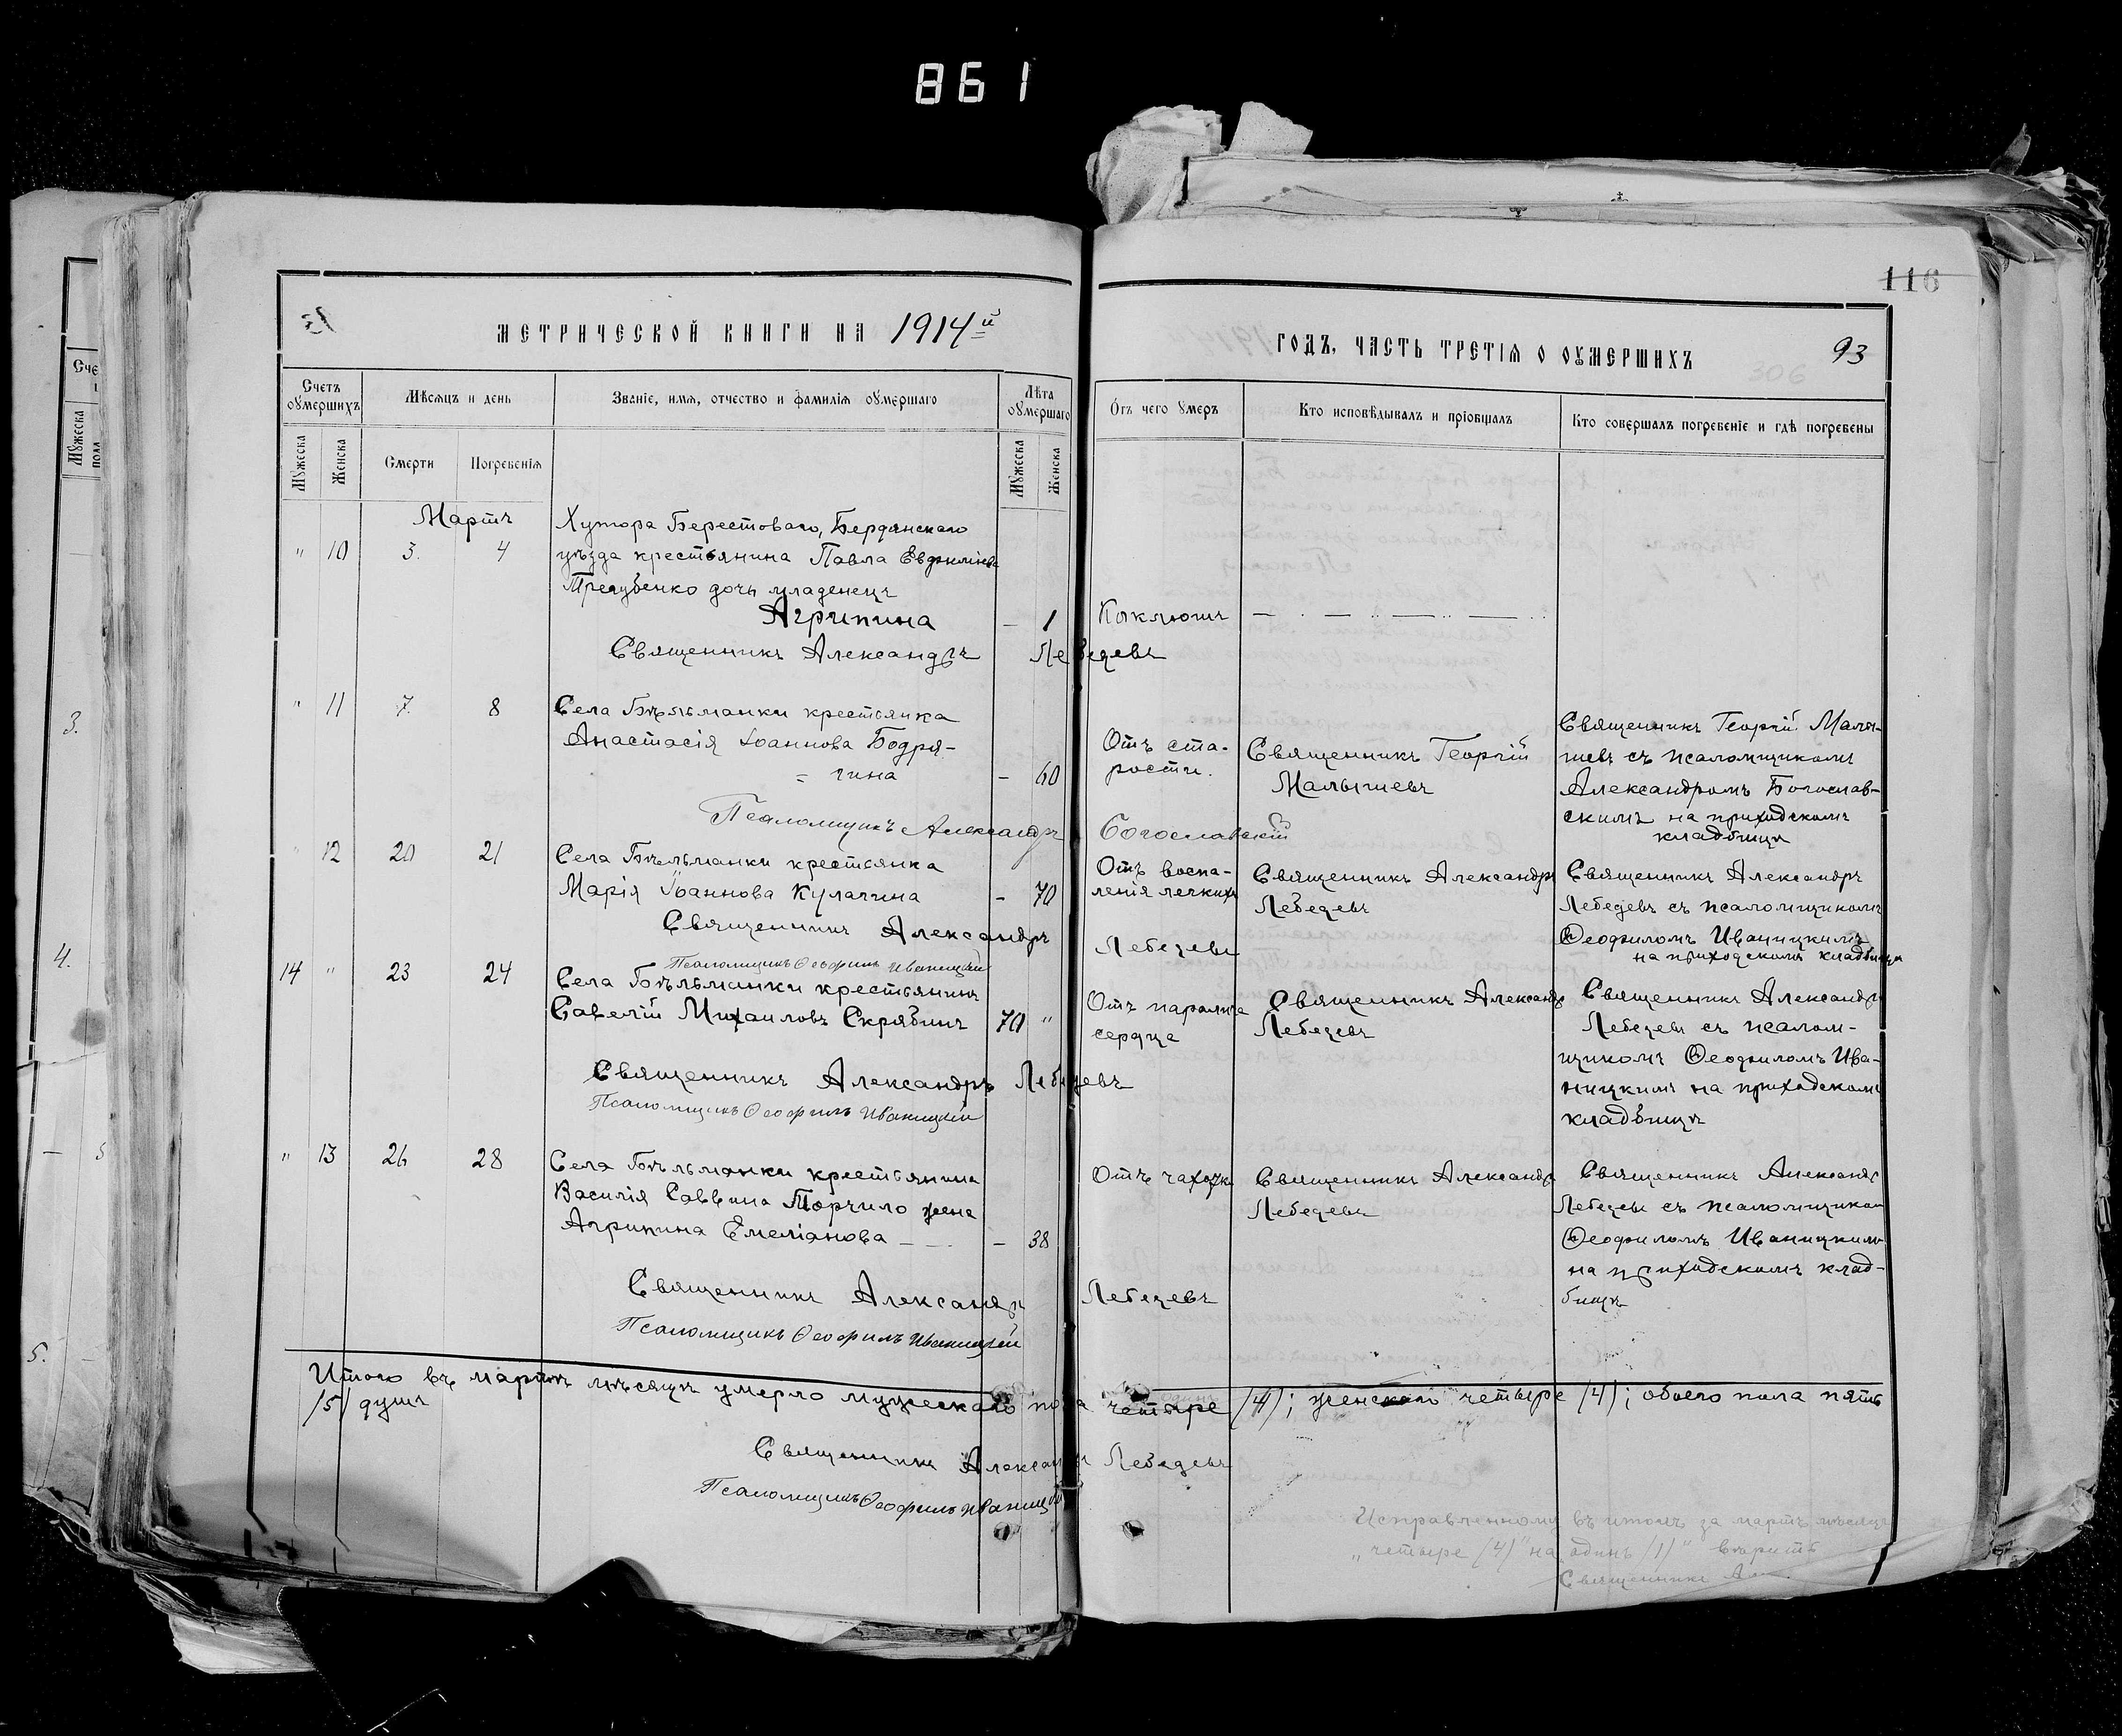 861
116
МЕТРИЧЕСКОЙ КНИГИ НА 1914й
ГОДЪ, ЧАСТЬ ТРЕТІѦ О ОУМЕРШИХЪ
93
306
Счетъ оумершихъ
Мѣсяцъ и день
Званіе, имя, отчество и фамилія оумершаго
Лѣта оумершаго
Отъ чего умеръ
Кто исповѣдывалъ и пріобщалъ
Кто совершалъ погребеніе и гдѣ погребены
Мужеска
Женска
Смерти
Погребенія
Мужеска
Женска
Мартъ
" 10 3. 4
Хутора Берестоваго, Бердянскаго
уѣзда крестьянина Павла Евфиміева
Трегубенко дочь младенецъ
Агрипина — 1
Коклюшъ
Священникъ Александръ Лебедевъ
" 11 7. 8
Села Бѣльманки крестьянка
Анастасія Іоаннова Бодря-
= гина – 60
Отъ ста-
рости.
Священникъ Георгій
Малышевъ
Священникъ Георгій Малы-
шевъ съ псаломщикомъ
Александромъ Богослав-
скимъ на приходскомъ
кладбищѣ
Псаломщикъ Александръ Богославскій
" 12 20 21
Села Бѣльманки крестьянка
Марія Іоаннова Кулагина – 70
Отъ воспа-
ленія легкихъ
Священникъ Александръ
Лебедевъ
Священникъ Александръ
Лебедевъ съ псаломщикомъ
Ѳеофиломъ Иваницкимъ
на приходскомъ кладбищѣ
Священникъ Александръ Лебедевъ
Псаломщикъ Ѳеофилъ Иваницкій
14 " 23 24
Села Бѣльманки крестьянинъ
Савелій Михаиловъ Скрябинъ 70 "
Отъ паралича
сердца
Священникъ Александръ
Лебедевъ
Священникъ Александръ
Лебедевъ съ псалом-
щикомъ Ѳеофиломъ Ива-
ницкимъ на приходскомъ
кладбищѣ
Священникъ Александръ Лебедевъ
Псаломщикъ Ѳеофилъ Иваницкій
" 13 26 28
Села Бѣльманки крестьянина
Василія Саввина Торчило жена
Агрипина Емеліанова — – 38
Отъ чахотки
Священникъ Александръ
Лебедевъ
Священникъ Александръ
Лебедевъ съ псаломщикомъ
Ѳеофиломъ Иваницкимъ
на приходскомъ клад-
бищѣ
Священникъ Александръ Лебедевъ
Псаломщикъ Ѳеофилъ Иваницкій
Итого въ мартѣ мѣсяцѣ умерло мужескаго пола четыре /4/; женскаго четыре /4/; обоего пола пять
/5/ душъ
Священникъ Александръ Лебедевъ
Псаломщикъ Ѳеофилъ Иваницкій
Исправленному въ итогѣ за мартъ мѣсяцъ
„четыре /4/ на одинъ /1/" вѣрить
Священникъ